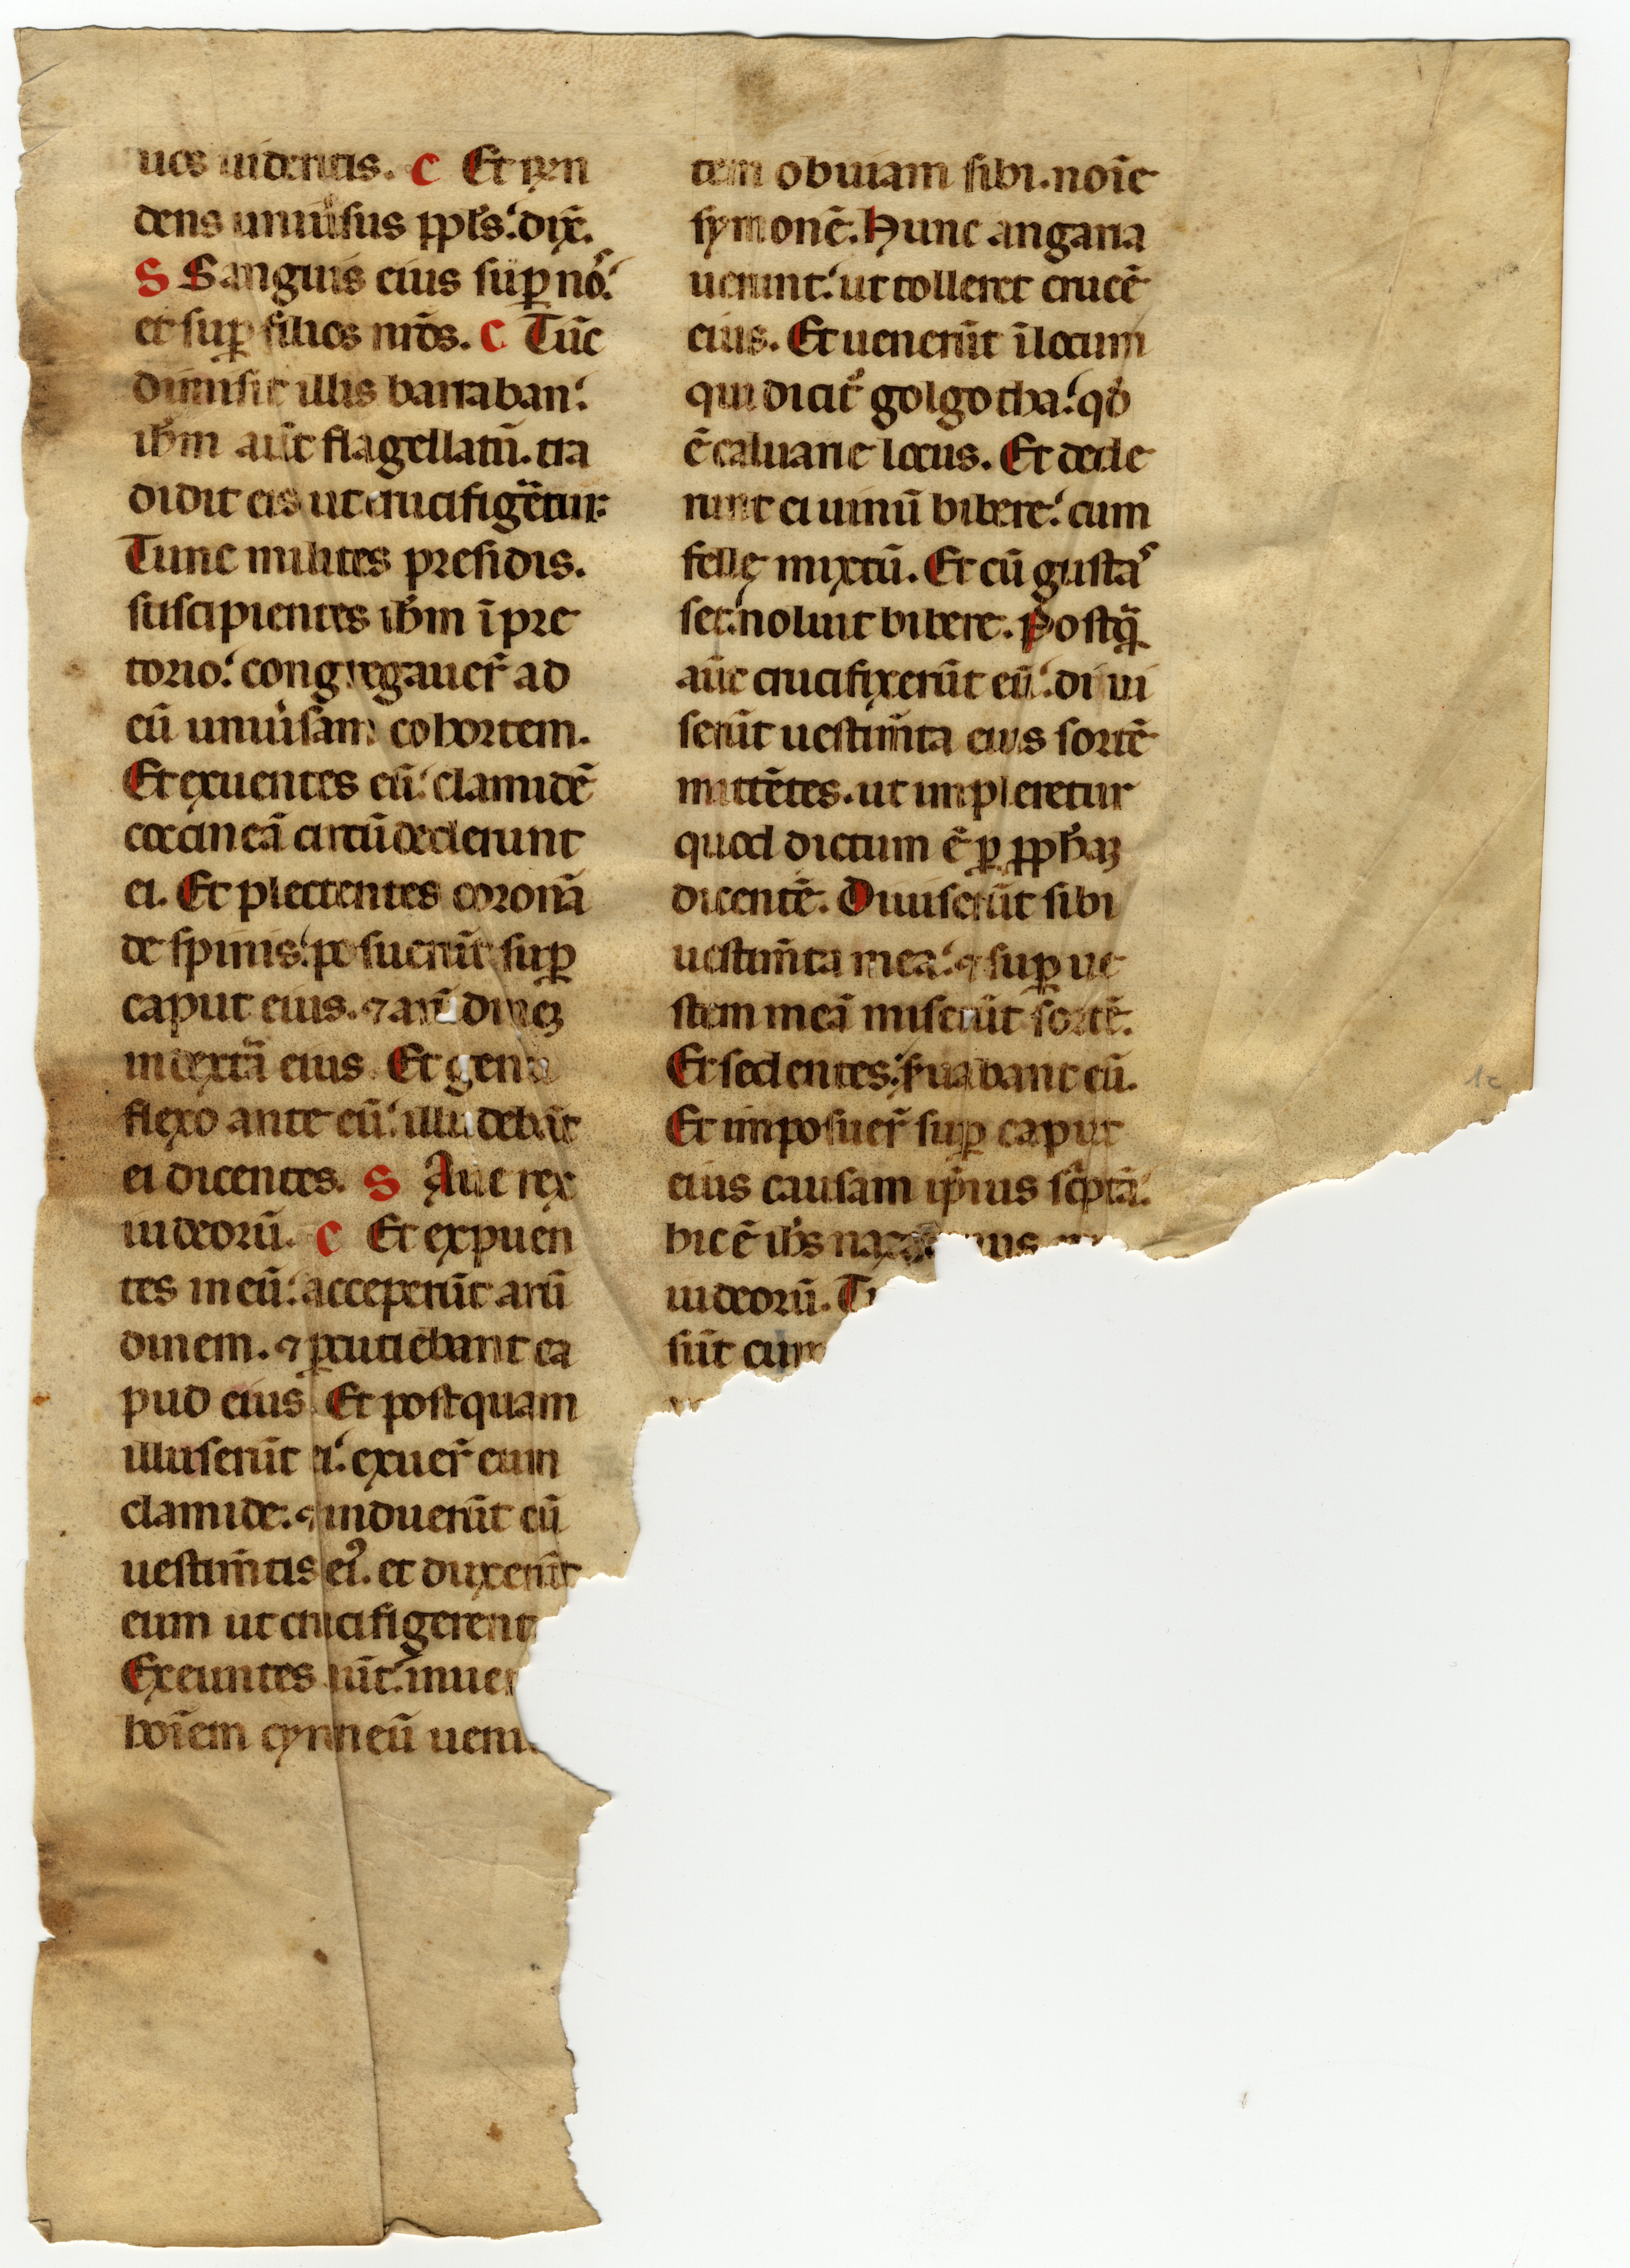 uos uideritis. C Et respon
dens uniu͛sus ppl̅s: dix̅.
S Sanguis eius sup̲ no͛:
et sup̲ filios nr̅os. C Tūc
dimisit illis barraban:
ih̅m aūt flagellatū. tra
didit eis ut crucifigētur.
Tunc milites presidis.
suscipientes ih̅m ī pre
torio: congregauer̅ ad
eū uniu͛sam cohortem.
Et exuentes eū: clamidē
coccineā circūdederunt
ei. Et plectentes coronā
de spinis: posuerūt sup̲
caput eius. ⁊ arūdineꝫ
in dext̅a eius. Et genu
flexo ante eū: illudebāt
ei dicentes. S Aue rex
iudeorū. C Et expuen
tes in eū: acceperūt arū
dinem. ⁊ p̲cutiebant ca
pud eius. Et postquam
illuserūt ei: exuer̅ eum
clamide. ⁊ induerūt eū
uestim̅tis ei᷒. et duxerūt
eum ut crucifigerent
Exeuntes aūt: inue
hoīem cyrineū ueni
tem obuiam sibi. noīe
symonē. Hunc angaria
uerunt: ut tolleret crucē
eius. Et uenerūt ī locum
qui dicit᷑ golgotha: qd̅
ē caluarie locus. Et dede
runt ei uinū bibere: cum
felle mixtū. Et cū gusta͛
set: noluit bibere. Postq̅
aūt crucifixerūt eū: diui
serūt uestim̅ta eius sortē
mittētes. ut impleretur
quod dictum ē p̲ pph̅aꝫ
dicentē. Diuiserūt sibi
uestim̅ta mea: ⁊ sup̲ ue
stem meā miserūt sortē.
Et sedentes: s͛uabant eū.
Et imposuer̅ sup̲ caput
eius causam ip̅ius sc̅ptā:
hic ē ih̅s
iudeorū.
sūt cum
1c